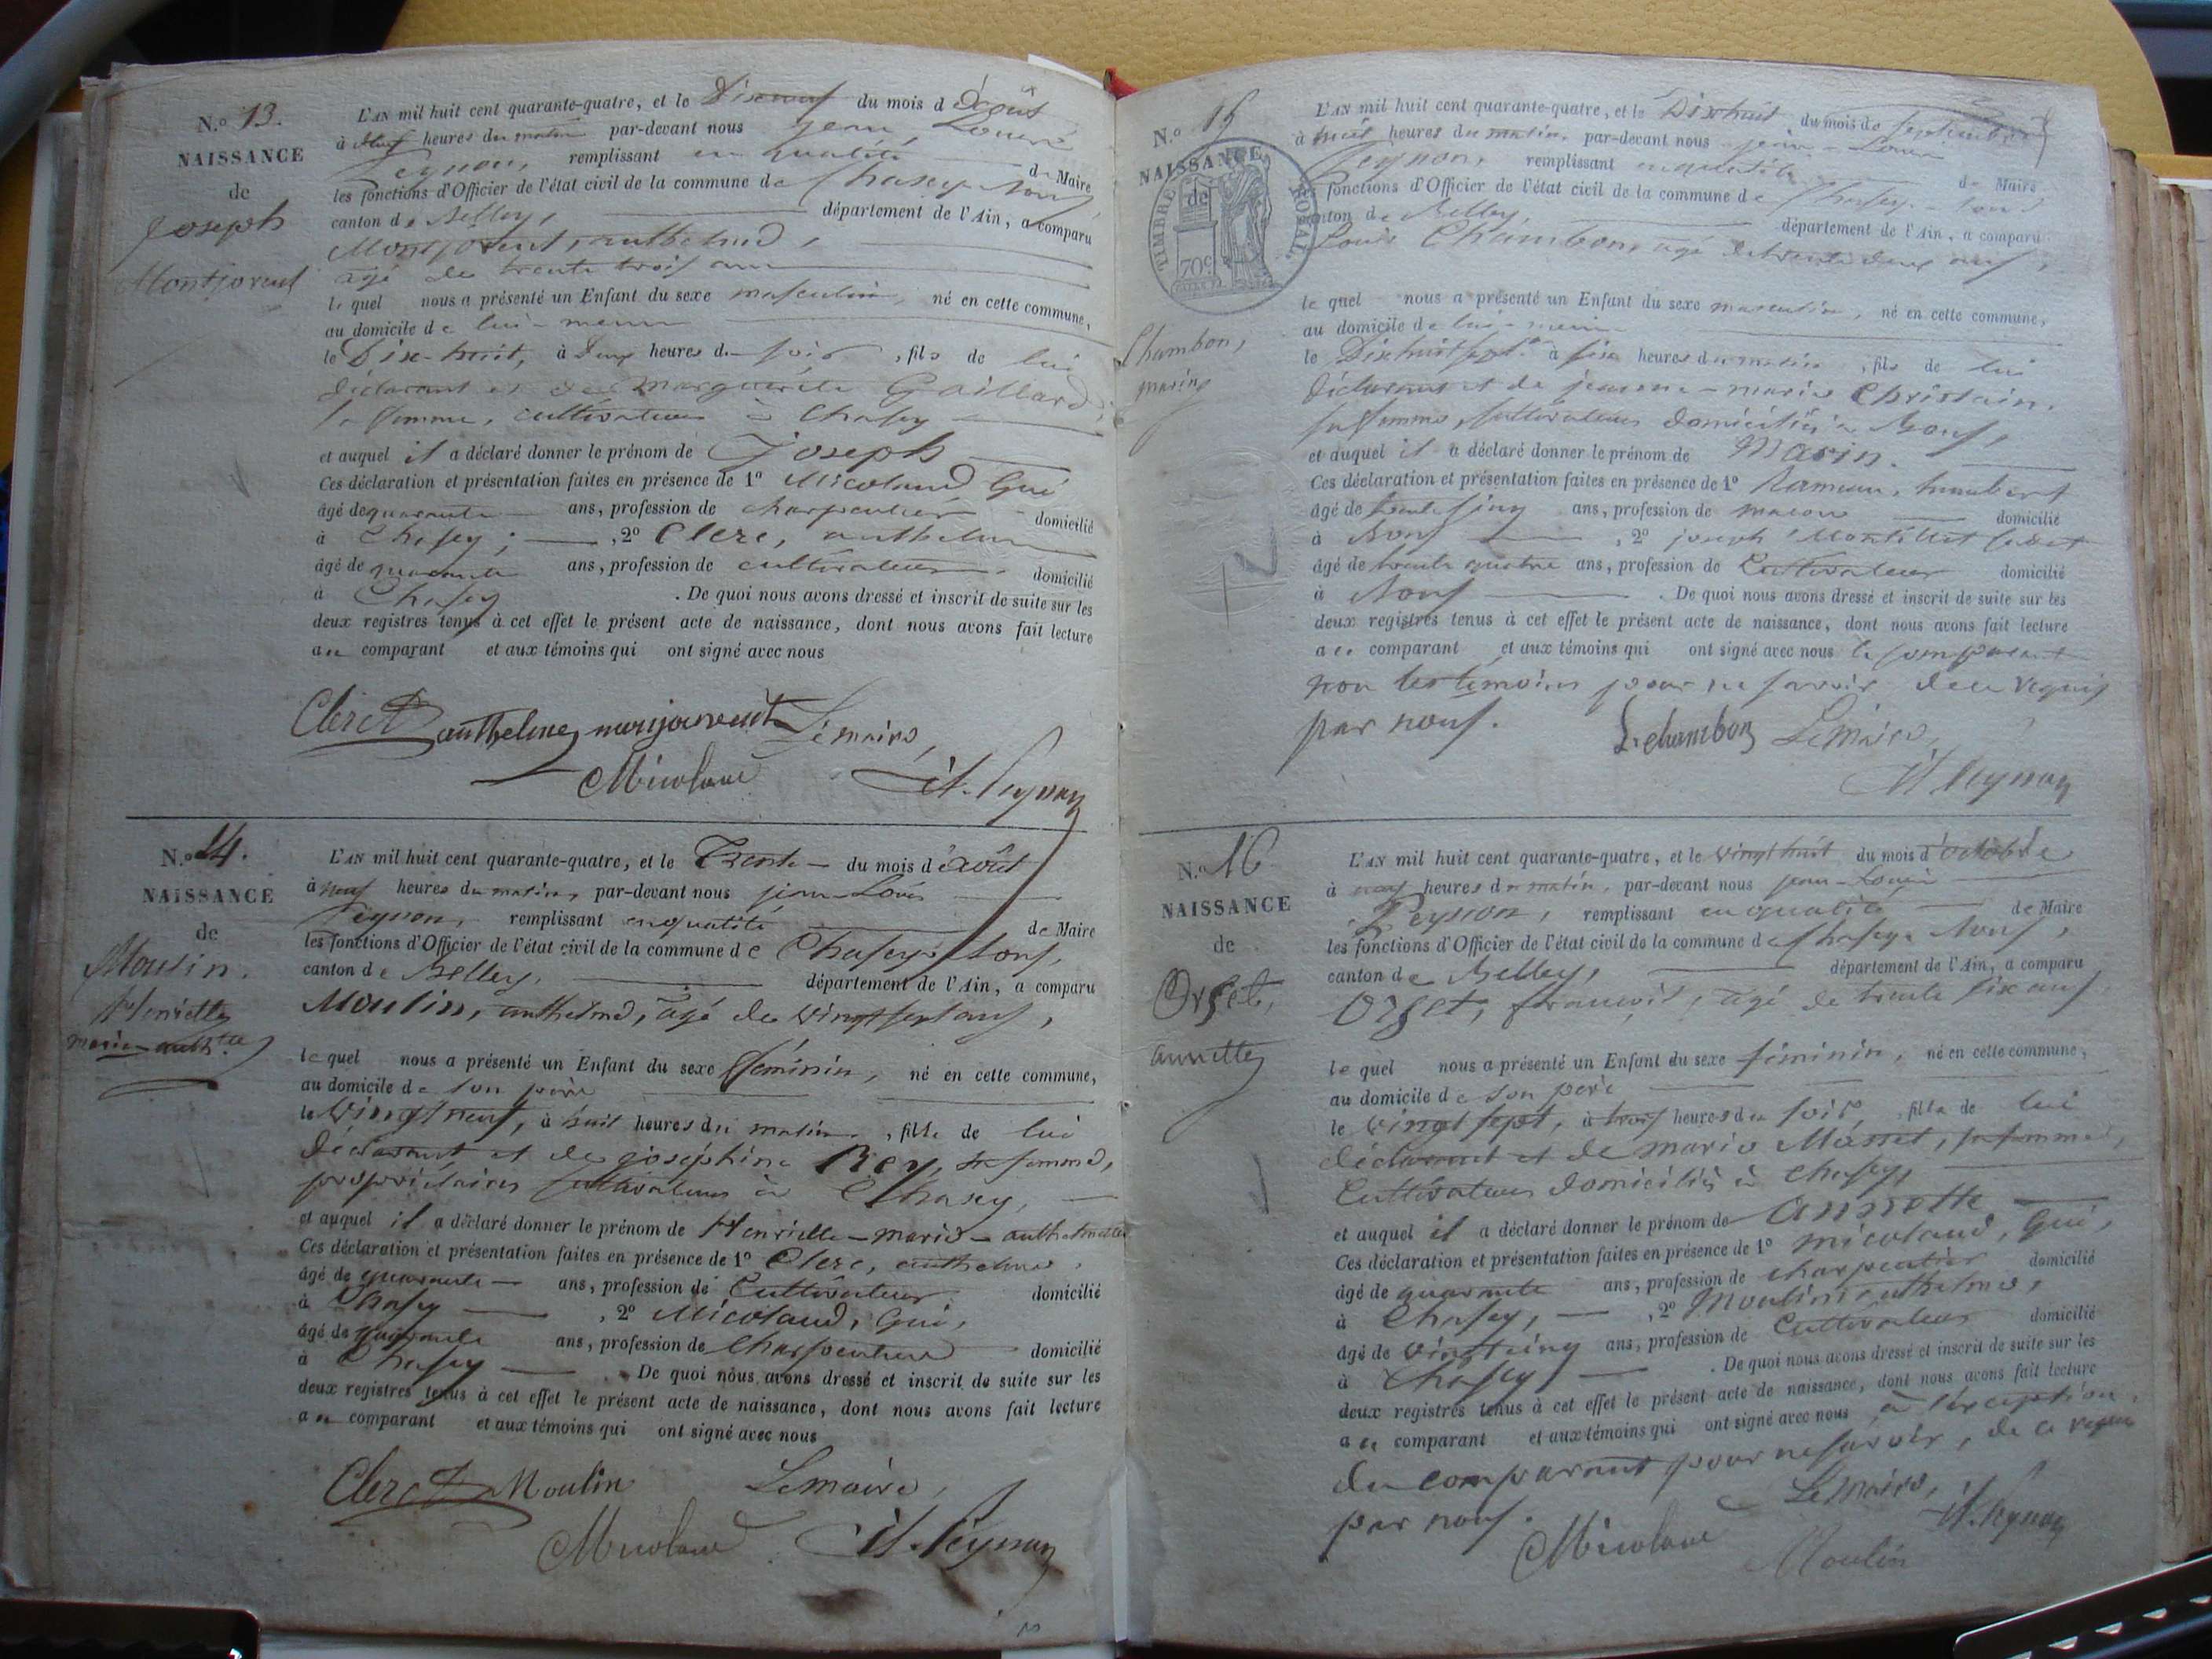 N.º 13.
NAISSANCE
de
Joseph
Montjovent
L'AN mil huit cent quarante-quatre, et le Dixneuf du mois d'août
à neuf heures du matin par-devant nous jean Louis
Peysson, remplissant en qualité de Maire
les fonctions d'Officier de l'état civil de la commune de Chasey-Bons
canton de Belley, département de l'Ain, a comparu
Montjovent, anthelme,
agé de trente trois ans
le quel nous a présenté un Enfant du sexe masculin, né en cette commune,
au domicile de lui-meme
le Dix-huit, à Deux heures du soir, fils de lui
déclarant et de Marguerite Gaillard,
sa femme, cultivateurs à Chasey
et auquel il a déclaré donner le prénom de Joseph
Ces déclaration et présentation faites en présence de 1º Micoland Gui
âgé de quarante ans, profession de charpentier domicilié
à Chasey; , 2º Clerc, anthelme
âgé de quarante ans, profession de cultivateur domicilié
à Chasey . De quoi nous avons dressé et inscrit de suite sur les
deux registres tenus à cet effet le présent acte de naissance, dont nous avons fait lecture
au comparant et aux témoins qui ont signé avec nous
Clerc anthelme monjovent Le maire,
Micoland
N.º 14.
NAISSANCE
de
Moulin.
Henriette
marie anth.tte
L'AN mil huit cent quarante-quatre, et le Trente du mois d'août
à neuf heures du matin, par-devant nous jean-Louis
Peysson, remplissant en qualité de Maire
les fonctions d'Officier de l'état civil de la commune de Chasey-Bons,
canton de Belley, département de l'Ain, a comparu
Moulin, anthelme, agé de vingt sept ans,
le quel nous a présenté un Enfant du sexe féminin, né en cette commune,
au domicile de son père
le vingt neuf, à huit heures du matin, fille de lui
déclarant et de joséphine Rey, sa femme,
propriétaires cultivateurs à Chasey,
et auquel il a déclaré donner le prénom de Henriette-marie-anthelmette
Ces déclaration et présentation faites en présence de 1º Clerc, anthelme,
âgé de quarante ans, profession de Cultivateur domicilié
à Chasey , 2º Micoland, Gui,
âgé de quarante ans, profession de Charpentier domicilié
à Chasey . De quoi nous avons dressé et inscrit de suite sur les
deux registres tenus à cet effet le présent acte de naissance, dont nous avons fait lecture
au comparant et aux témoins qui ont signé avec nous
Clerc Moulin Le maire,
Micoland
N.º 15
NAISSANCE
de
TIMBRE ROYAL
70c
Chambon,
marin
L'AN mil huit cent quarante-quatre, et le Dixhuit du mois de septembre
à huit heures du matin, par-devant nous jean-Louis
Peysson, remplissant en qualité de Maire
les fonctions d'Officier de l'état civil de la commune de Chasey-Bons
canton de Belley, département de l'Ain, a comparu
Louis Chambon, agé de trente deux ans,
le quel nous a présenté un Enfant du sexe masculin, né en cette commune,
au domicile de lui-meme
le Dixhuit sept.e à six heures du matin, fils de lui
déclarant et de jeanne-marie Christain,
sa femme, cultivateurs domiciliés à Bons,
et auquel il a déclaré donner le prénom de Marin.
Ces déclaration et présentation faites en présence de 1º Rameau, humbert
âgé de trente cinq ans, profession de macon domicilié
à Bons , 2º joseph Montillet cadet
âgé de trente quatre ans, profession de Cultivateur domicilié
à Bons . De quoi nous avons dressé et inscrit de suite sur les
deux registres tenus à cet effet le présent acte de naissance, dont nous avons fait lecture
au comparant et aux témoins qui ont signé avec nous le comparant
non les témoins pour ne savoir de ce requis
par nous.
L. chambon Le Maire,
N.º 16
NAISSANCE
de
Orset,
annette
L'AN mil huit cent quarante-quatre, et le vingt huit du mois d'octobre
à neuf heures du matin, par-devant nous jean-Louis
Peysson, remplissant en qualité de Maire
les fonctions d'Officier de l'état civil de la commune de Chasey-Bons,
canton de Belley, département de l'Ain, a comparu
Orset, francois, agé de trente six ans,
le quel nous a présenté un Enfant du sexe féminin, né en cette commune,
au domicile de son père
le vingt sept, à trois heures du soir, fille de lui
déclarant et de marie Masset, sa femme,
Cultivateurs domiciliés à Chasey,
et auquel il a déclaré donner le prénom de annette
Ces déclaration et présentation faites en présence de 1º micoland, Gui,
âgé de quarante ans, profession de charpentier domicilié
à Chasey, , 2º Moulin anthelme,
âgé de vingt cinq ans, profession de Cultivateur domicilié
à Chasey . De quoi nous avons dressé et inscrit de suite sur les
deux registres tenus à cet effet le présent acte de naissance, dont nous avons fait lecture
au comparant et aux témoins qui ont signé avec nous à l'exception
du comparant pour ne savoir, de ce requis
par nous.
Le Maire,
Micoland
Moulin